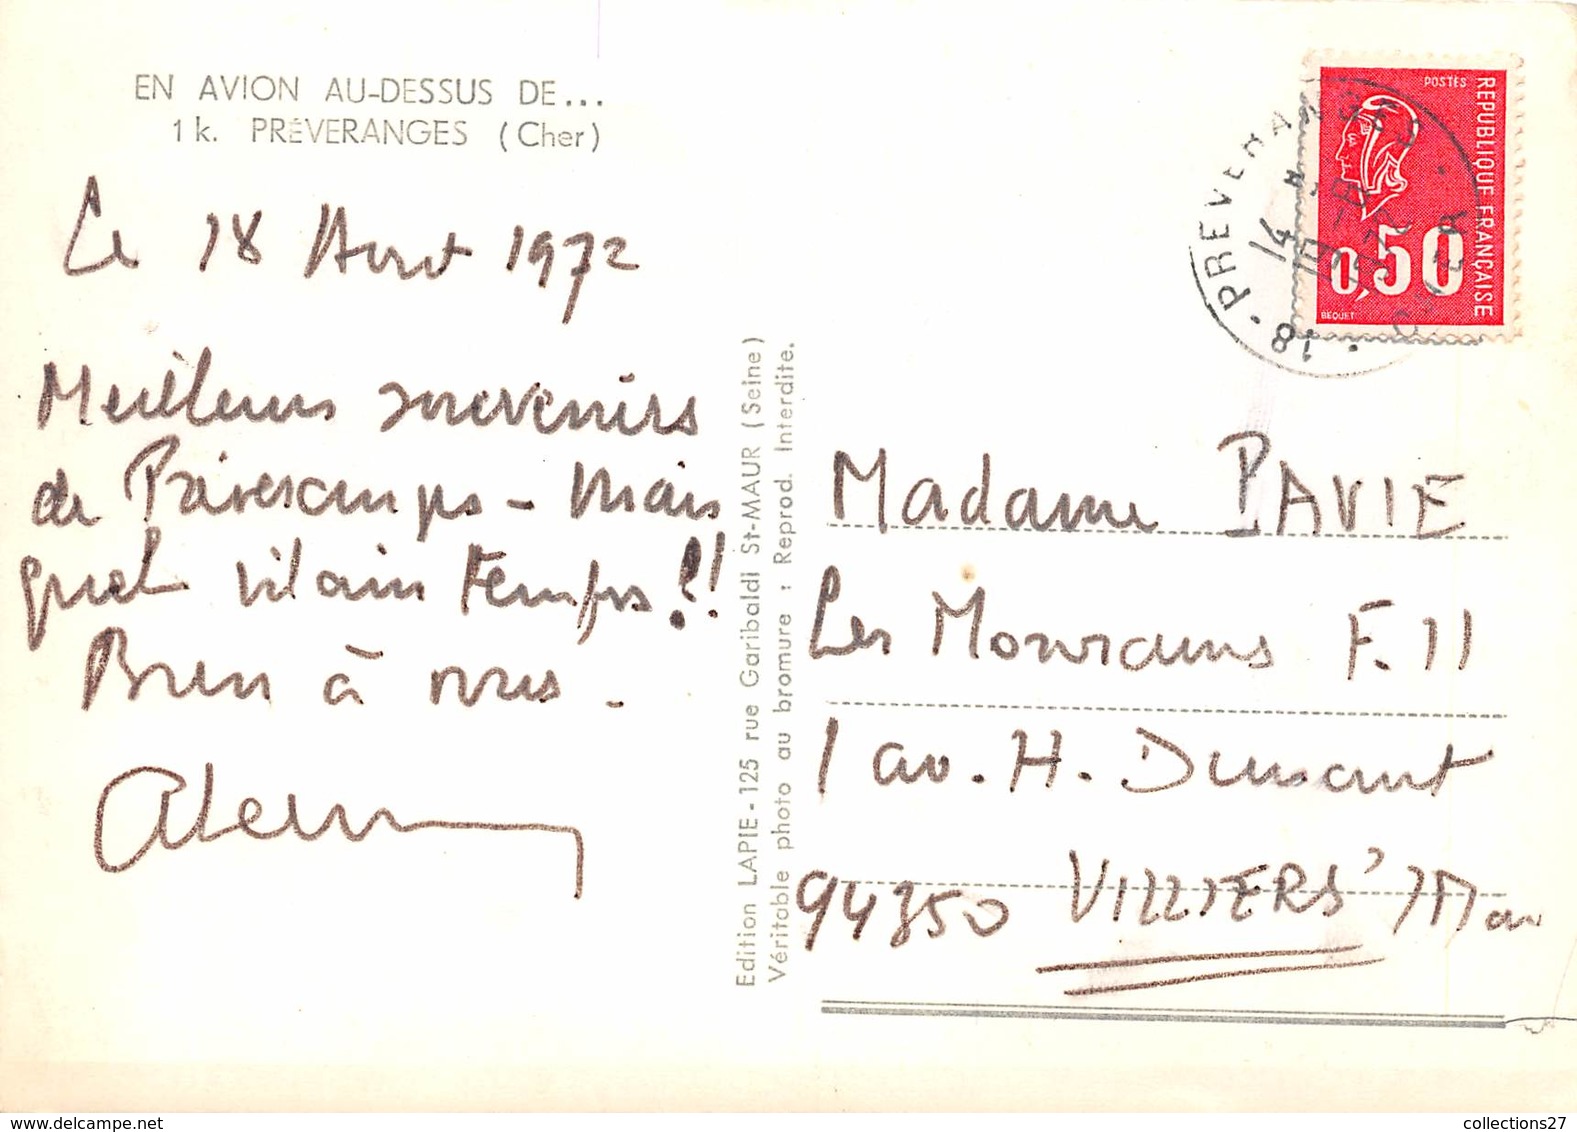 EN AVION AU-DESSUS DE...
1 k. PRÉVERANGES (Cher)
Le 18 Aout 1972
Meilleurs souvenirs
de Préveranges - Mais
quel vilain temps!!
Bien à vous.
Edition LAPIE - 125 rue Garibaldi St-MAUR (Seine)
Véritable photo au bromure : Reprod. Interdite.
POSTES
REPUBLIQUE FRANÇAISE
0,50
BEQUET
18 · PREVERANGES · CHER
Madame PAVIE
Les F. 11
1 av. H. Dunant
94350 VILLIERS / Mar
collections27